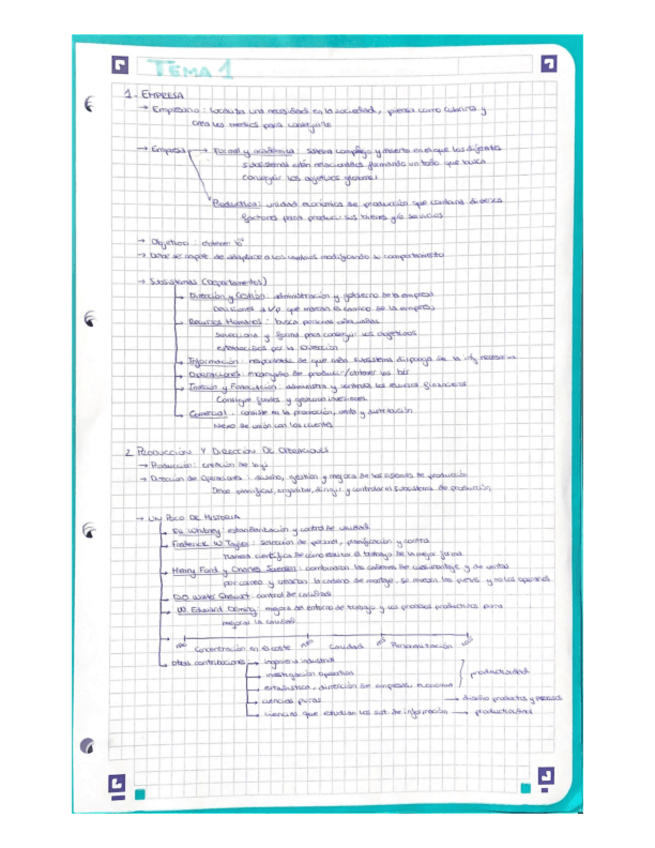 TEMA 1
1. EMPRESA
→ Empresario: localiza una necesidad en la sociedad, piensa como cubrirla y
crea los medios para conseguirlo
→ Empresa → Formal y académica: sistema complejo y abierto en el que los distintos
subsistemas están relacionados formando un todo que busca
conseguir los objetivos globales
Productiva: unidad económica de producción que combina diversos
factores para producir sus bienes y/o servicios
→ Objetivo: obtener bº
→ Debe ser capaz de adaptarse a los cambios modificando su comportamiento
→ Subsistemas (Departamentos)
→ Dirección y Gestión: administración y gobierno de la empresa
Decisiones a l/p que marcan el camino de la empresa
→ Recursos Humanos: busca personas adecuadas
Selecciona y forma para conseguir los objetivos
establecidos por la Dirección
→ Información: responsable de que cada subsistema disponga de la inf. necesaria
→ Operaciones: encargado de producir/obtener los
→ Inversión y Financiación: administra y controla los recursos financieros
Consigue fondos y gestiona inversiones
→ Comercial: consiste en la promoción, venta y distribución
Nexo de unión con los clientes
2. PRODUCCIÓN Y DIRECCIÓN DE OPERACIONES
→ Producción: creación de b y s
→ Dirección de Operaciones: diseño, gestión y mejora de los sistemas de producción
Debe planificar, organizar, dirigir y controlar el subsistema de producción
→ UN POCO DE HISTORIA
→ Eli Whitney: estandarización y control de calidad
→ Frederick W. Taylor: selección de personal, planificación y control
manera científica de como realizar el trabajo de la mejor forma
→ Henry Ford y Charles Sorensen: combinaron las cadenas de montaje y de ventas
por correo y crearon la cadena de montaje, se mueven las piezas y no los operarios
→ Walter Shewart: control de calidad
→ W. Edward Deming: mejora del entorno de trabajo y los procesos productivos para
mejorar la calidad
→ Concentración en el coste Calidad Personalización
→ Otras contribuciones → ingeniería industrial
→ investigación operativa
→ estadística, dirección de empresas, economía } productividad
→ ciencias puras → diseño productos y procesos
→ ciencias que estudian los sist. de información → productividad